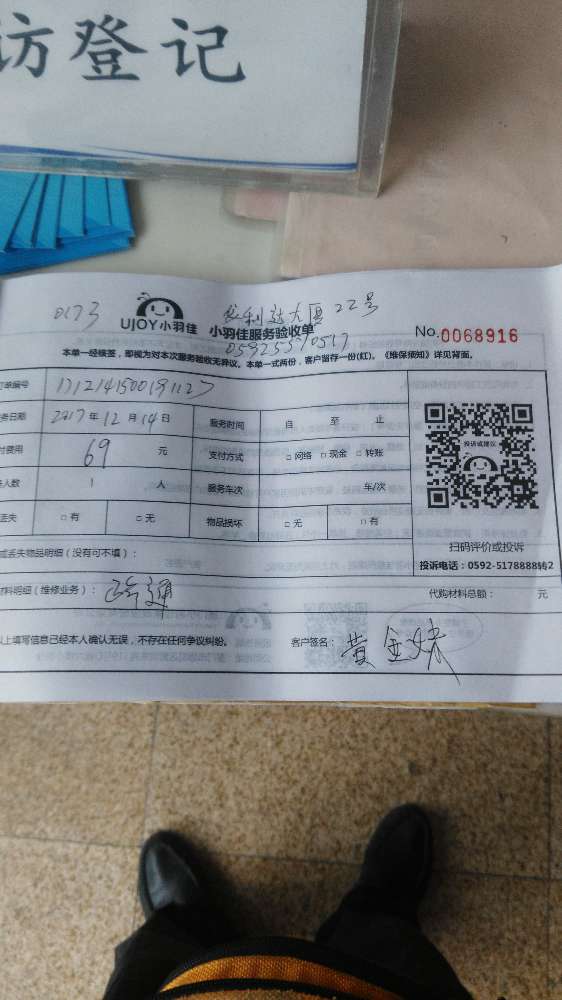 访登记
0173
大厦22号
UJOY小羽佳 小羽佳服务验收单
No.0068916
05925570517
本单一经核签,即视为对本次服务验收无异议。本单一式两份,客户留存一份(红)。《维保须知》详见背面。
订单编号
务日期 2017年12月14日 服务时间 自 至 止
付费用 69 元 支付方式 □网络 □现金 □转账
人数 1 人 服务车次 车/次
丢失 □有 □无 物品损坏 □无 □有
投诉或建议
扫码评价或投诉
投诉电话:0592-5178888转2
或丢失物品明细(没有可不填):
材料明细(维修业务): 代购材料总额: 元
以上填写信息已经本人确认无误,不存在任何争议纠纷。 客户签名: 黄金妹